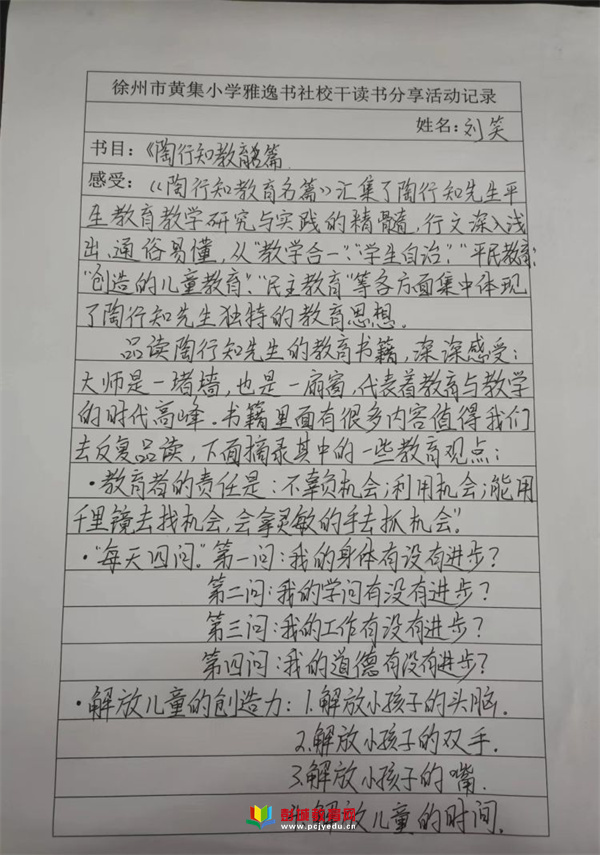 徐州市黄集小学雅逸书社校干读书分享活动记录
姓名：刘笑
书目：《陶行知教育名篇
感受：《陶行知教育名篇》汇集了陶行知先生平
生教育教学研究与实践的精髓，行文深入浅
出、通俗易懂，从“教学合一”、“学生自治”、“平民教育”、
“创造的儿童教育”、“民主教育”等各方面集中体现
了陶行知先生独特的教育思想。
品读陶行知先生的教育书籍，深深感受：
大师是一堵墙，也是一扇窗，代表着教育与教学
的时代高峰。书籍里面有很多内容值得我们
去反复品读，下面摘录其中的一些教育观点：
·教育者的责任是：不辜负机会；利用机会；能用
千里镜去找机会，会拿灵敏的手去抓机会”。
·“每天四问。”第一问：我的身体有没有进步？
第二问：我的学问有没有进步？
第三问：我的工作有没有进步？
第四问：我的道德有没有进步？
·解放儿童的创造力：1.解放小孩子的头脑.
2.解放小孩子的双手.
3.解放小孩子的嘴.
4.解放儿童的时间.
彭城教育网
www.pcjyedu.cn